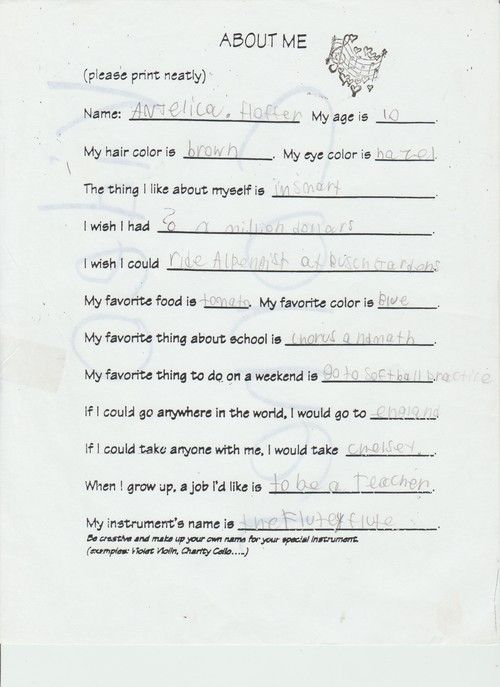 ABOUT ME
(please print neatly)
Name: Anjelica. Hoffer My age is 10.
My hair color is brown. My eye color is hazel.
The thing I like about myself is im smart.
I wish I had a million dollars.
I wish I could ride Alpengist at Busch Gardens
My favorite food is tomato. My favorite color is Blue.
My favorite thing about school is chorus and math.
My favorite thing to do on a weekend is go to softball practice
If I could go anywhere in the world, I would go to england.
If I could take anyone with me, I would take chelsey.
When I grow up, a job I'd like is to be a Teacher.
My instrument's name is the Flutey flute.
Be creative and make up your own name for your special instrument.
(examples: Violet Violin, Charity Cello.....)